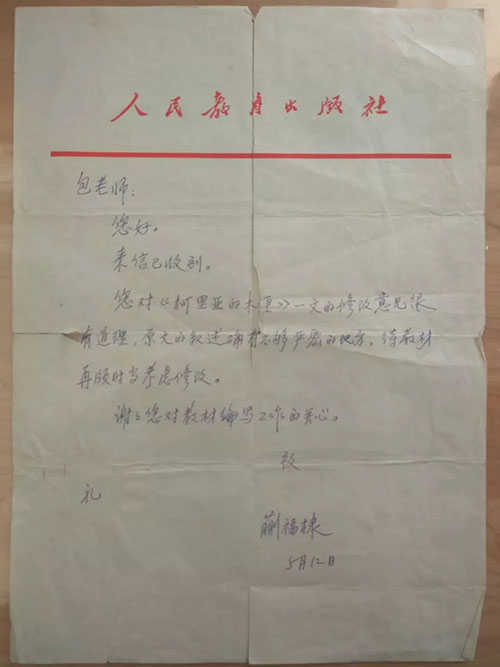 人民教育出版社
包老师：
您好。
来信已收到。
您对《柯里亚的木匣》一文的修改意见很
有道理，原文的叙述确有不够严密的地方。待教材
再版时当考虑修改。
谢谢您对教材编写工作的关心。
致
礼
蒯福棣
5月12日